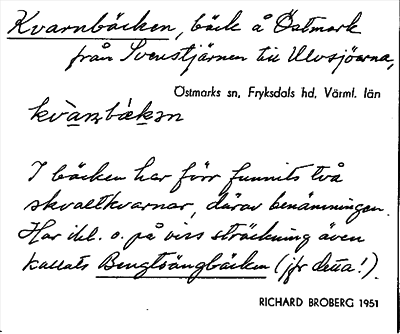 Kvarnbäcken, bäck å Östmark
från Svenstjärnen till Ulvsjöarna,
Östmarks sn, Fryksdals hd, Värml. län
I bäcken har förr funnits två
skvaltkvarnar, därav benämningen.
Har ibl. o. på viss sträckning även
kallats Bengtsängbäcken (jfr detta!).
RICHARD BROBERG 1951